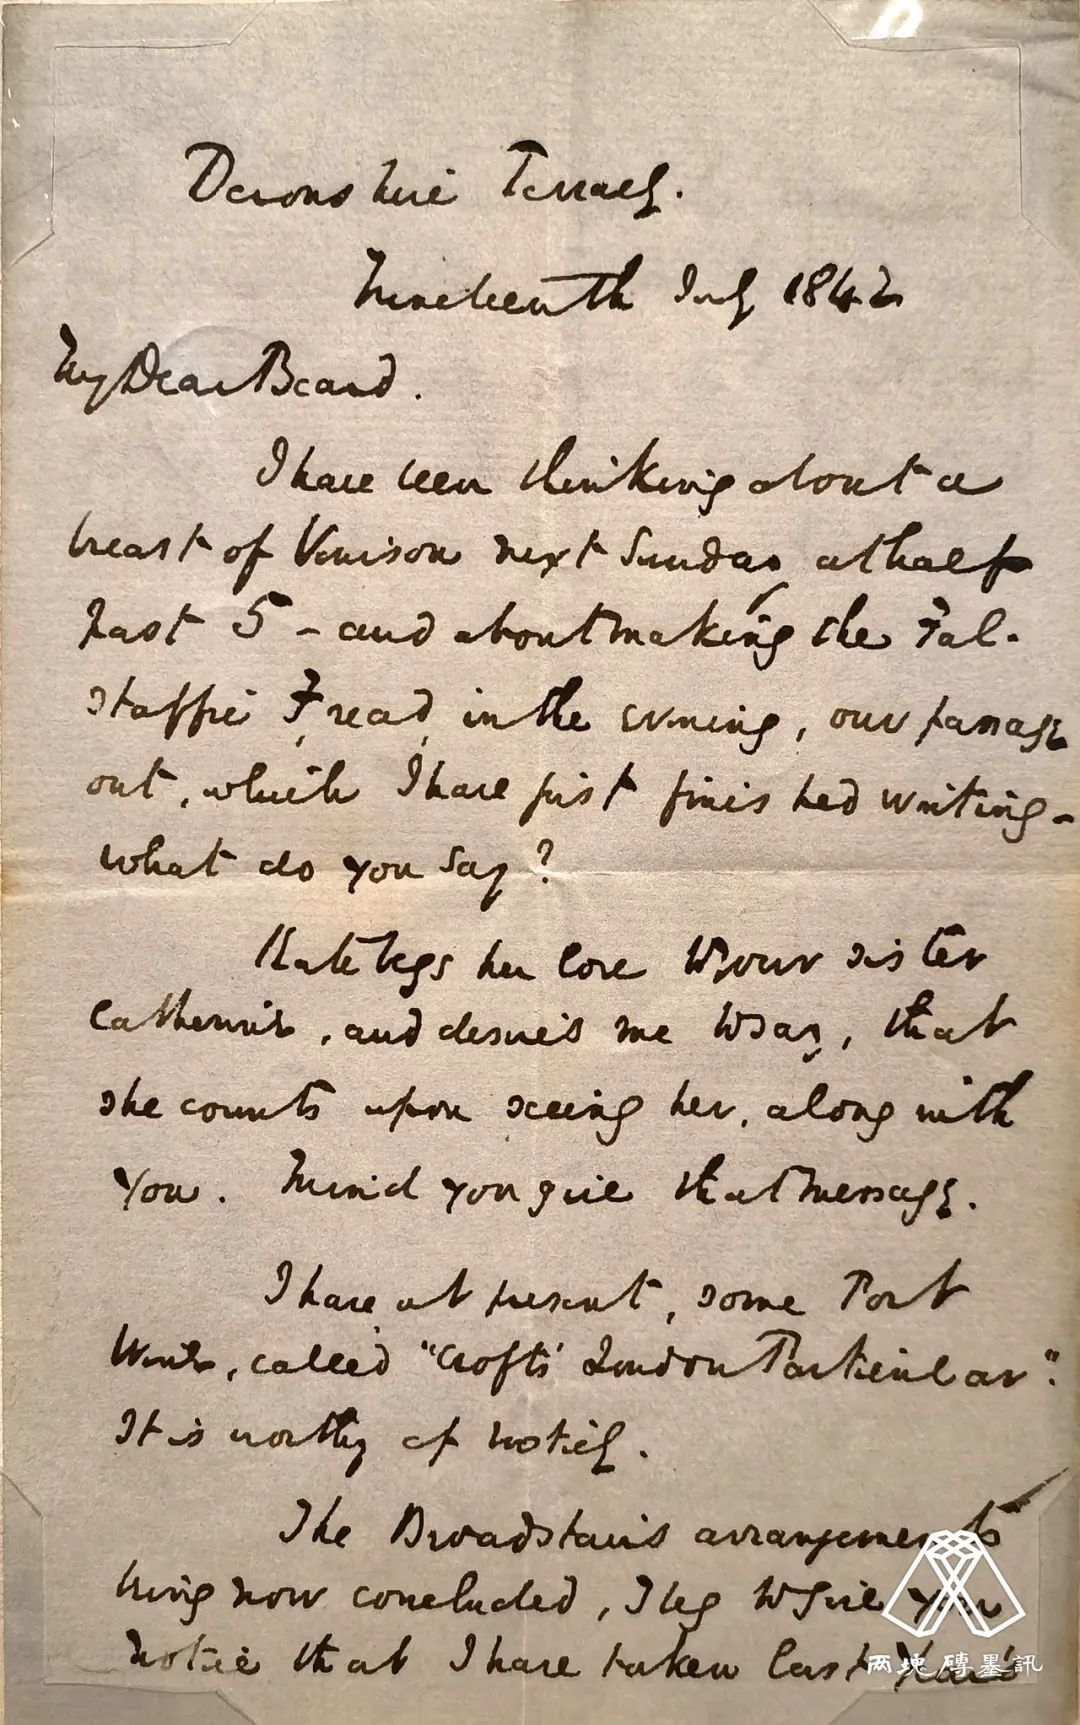 Devonshire Terrace.
Nineteenth July 1842
My Dear Beard.
I have been thinking about a
breast of Venison next Sunday at half
past 5 – and about making the Fal-
staffe F, read, in the evening, our passage
out, which I have just finished writing –
what do you say?
Kate begs her love to your sister
Catherine, and desires me to say, that
she counts upon seeing her, along with
you. Mind you give that message.
I have at present, some Port
Wine, called "Crofts' London Particular".
It is worthy of notice.
The Broadstairs arrangements
being now concluded, I beg to give you
notice that I have taken last Year's
两塊磚墨訊